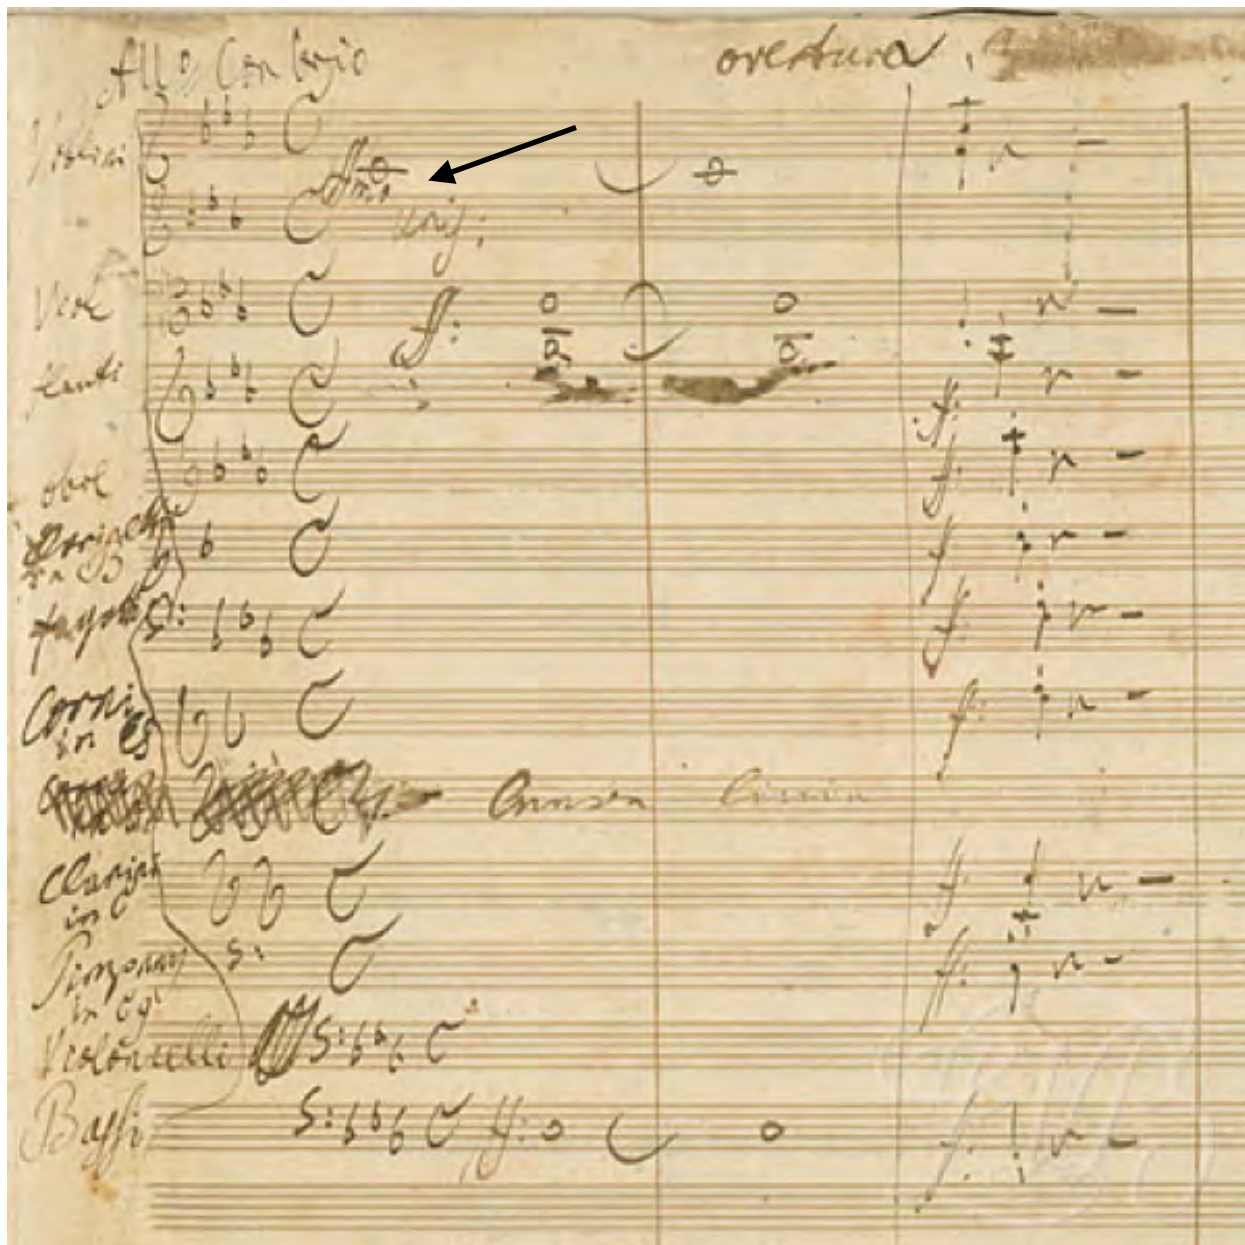 All° Con brio
overtura.
Violini
ff
unis:
Viole
ff:
flauti
ff:
oboe
ff:
Clarinetti
in B
ff:
fagotti
ff:
Corni
in Es
ff:
Clarini
in C
ff:
Timpany
in C g
ff:
Violoncelli
Bassi
ff:
ff: